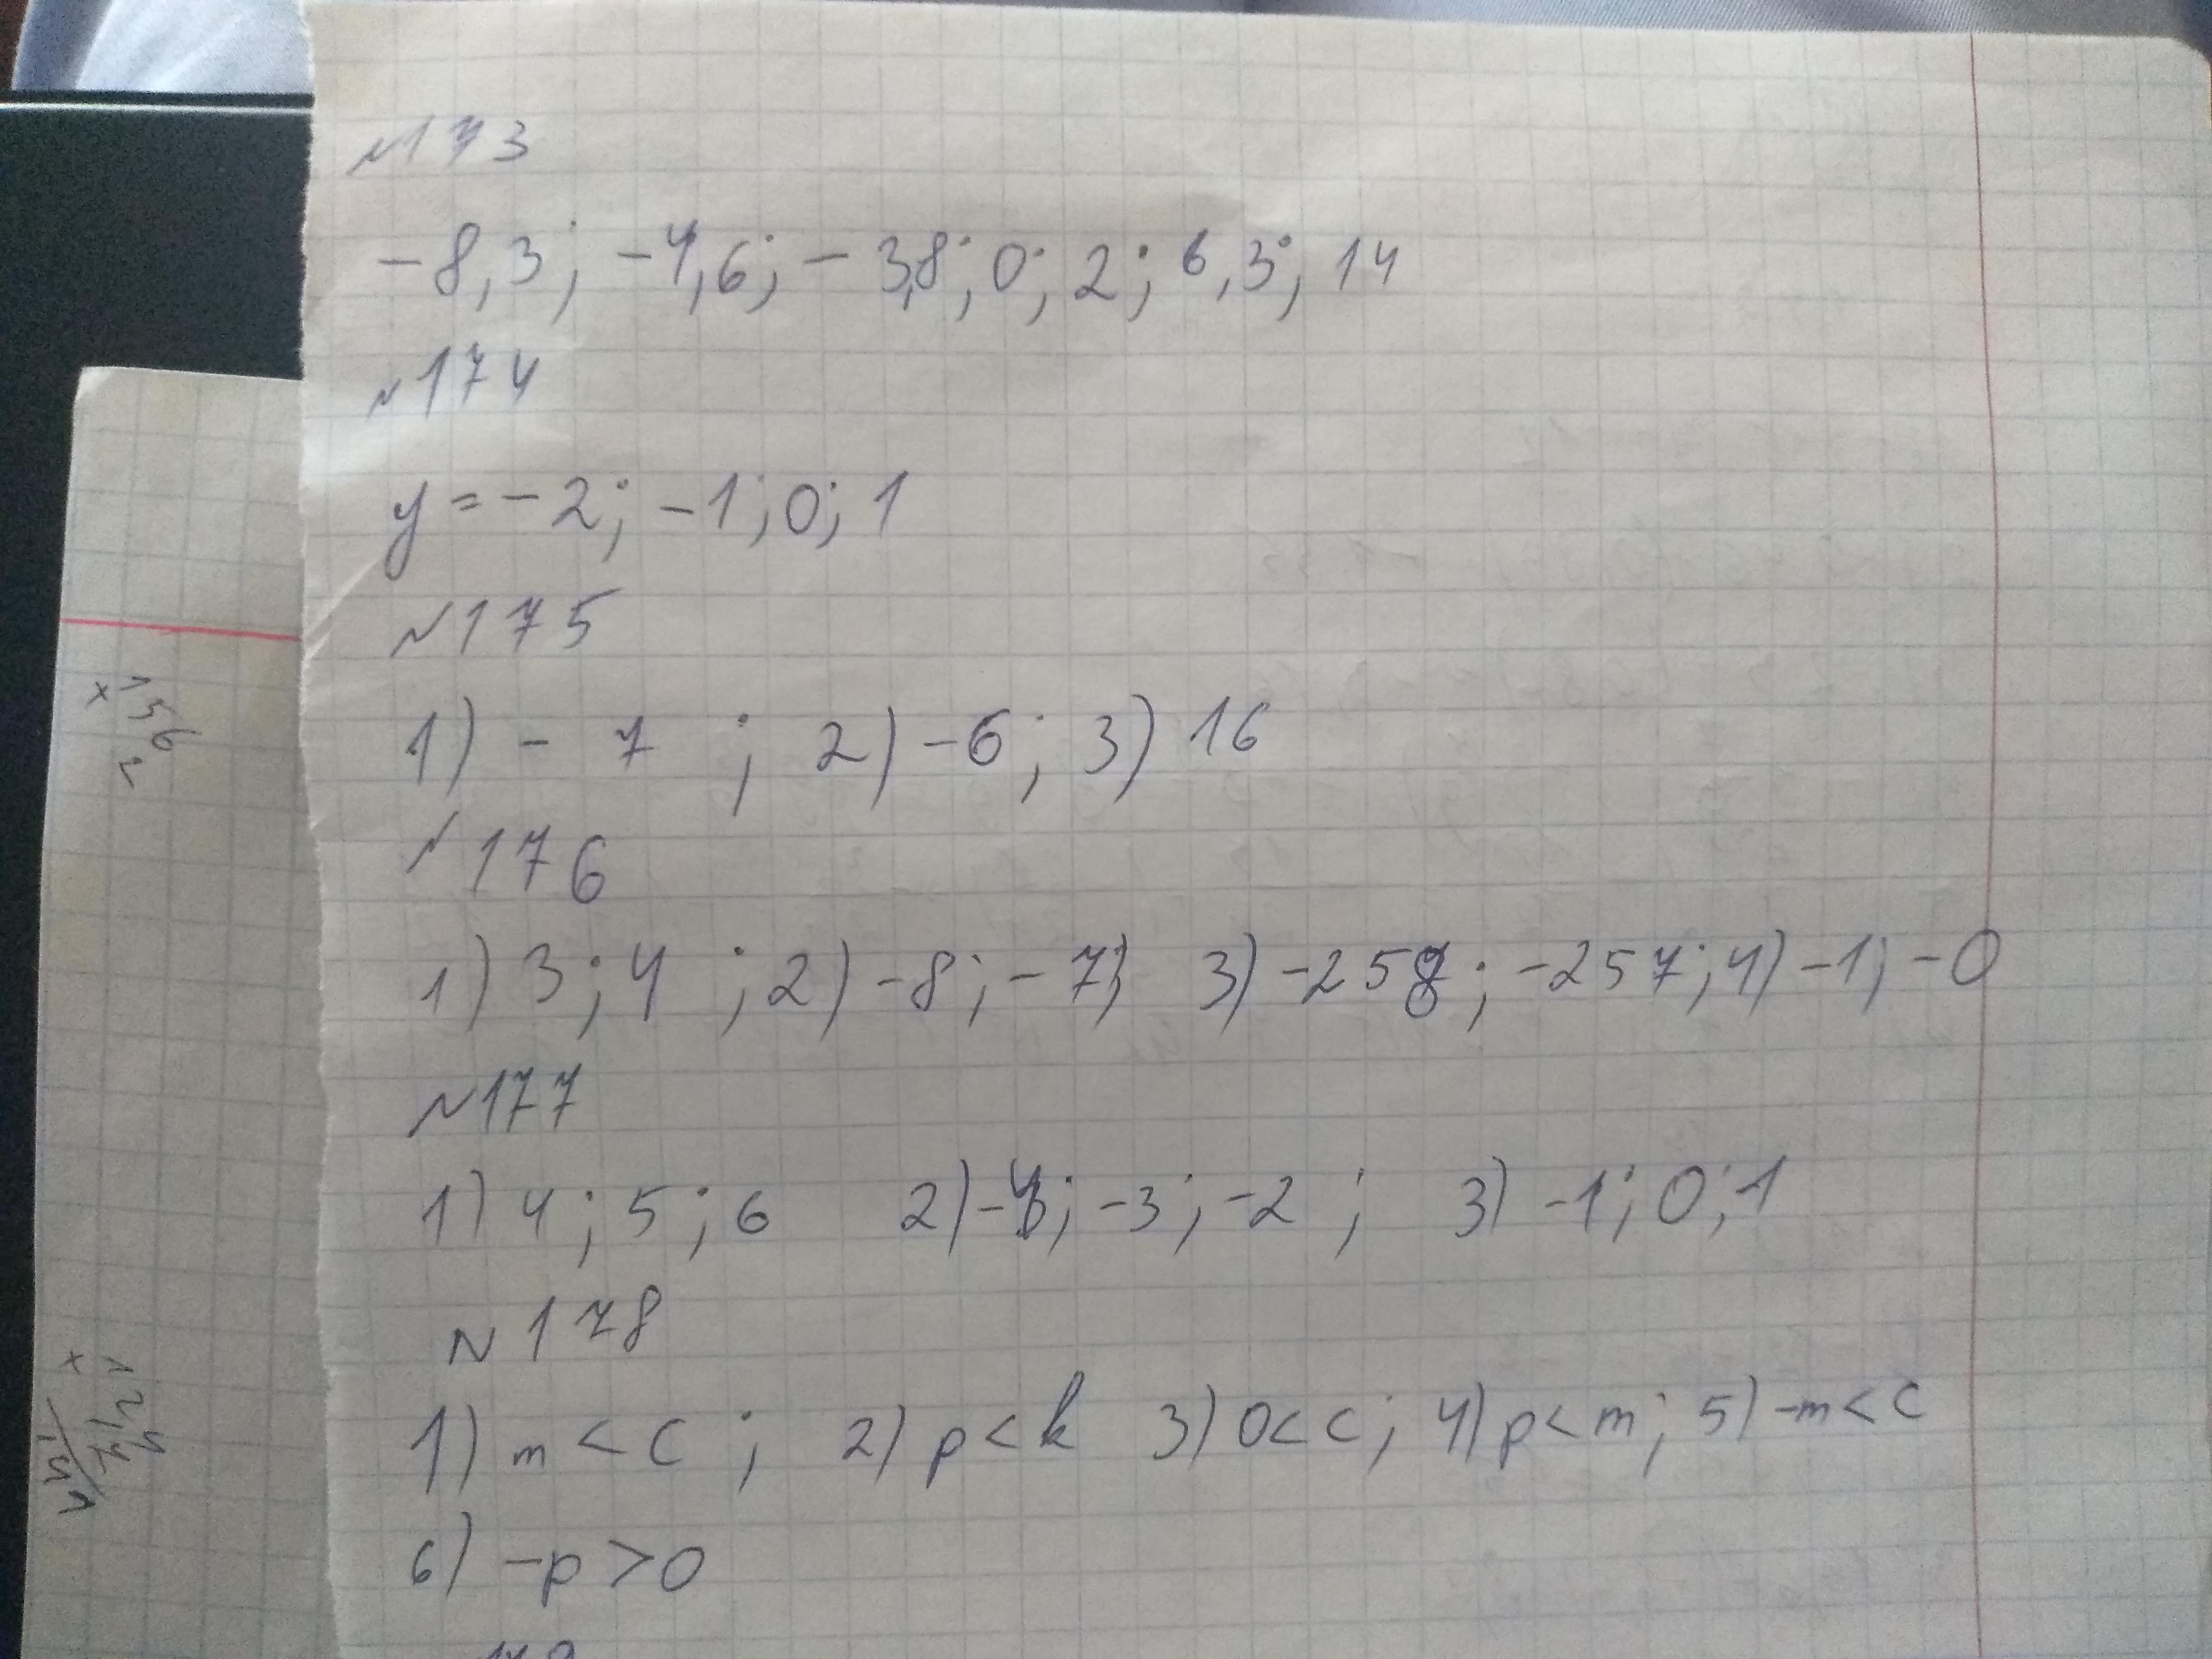 №173
-8,3; -4,6; -3,8; 0; 2; 6,3; 14
№174
y = -2; -1; 0; 1
№175
1) - 7 ; 2) -6; 3) 16
№176
1) 3; 4 ; 2) -8; -7; 3) -258; -257; 4) -1; -0
№177
1) 4; 5; 6 2) -4; -3; -2 ; 3) -1; 0; 1
№178
1) m < c ; 2) p < k 3) 0 < c; 4) p < m; 5) -m < c
6) -p > 0
× 1,56
2